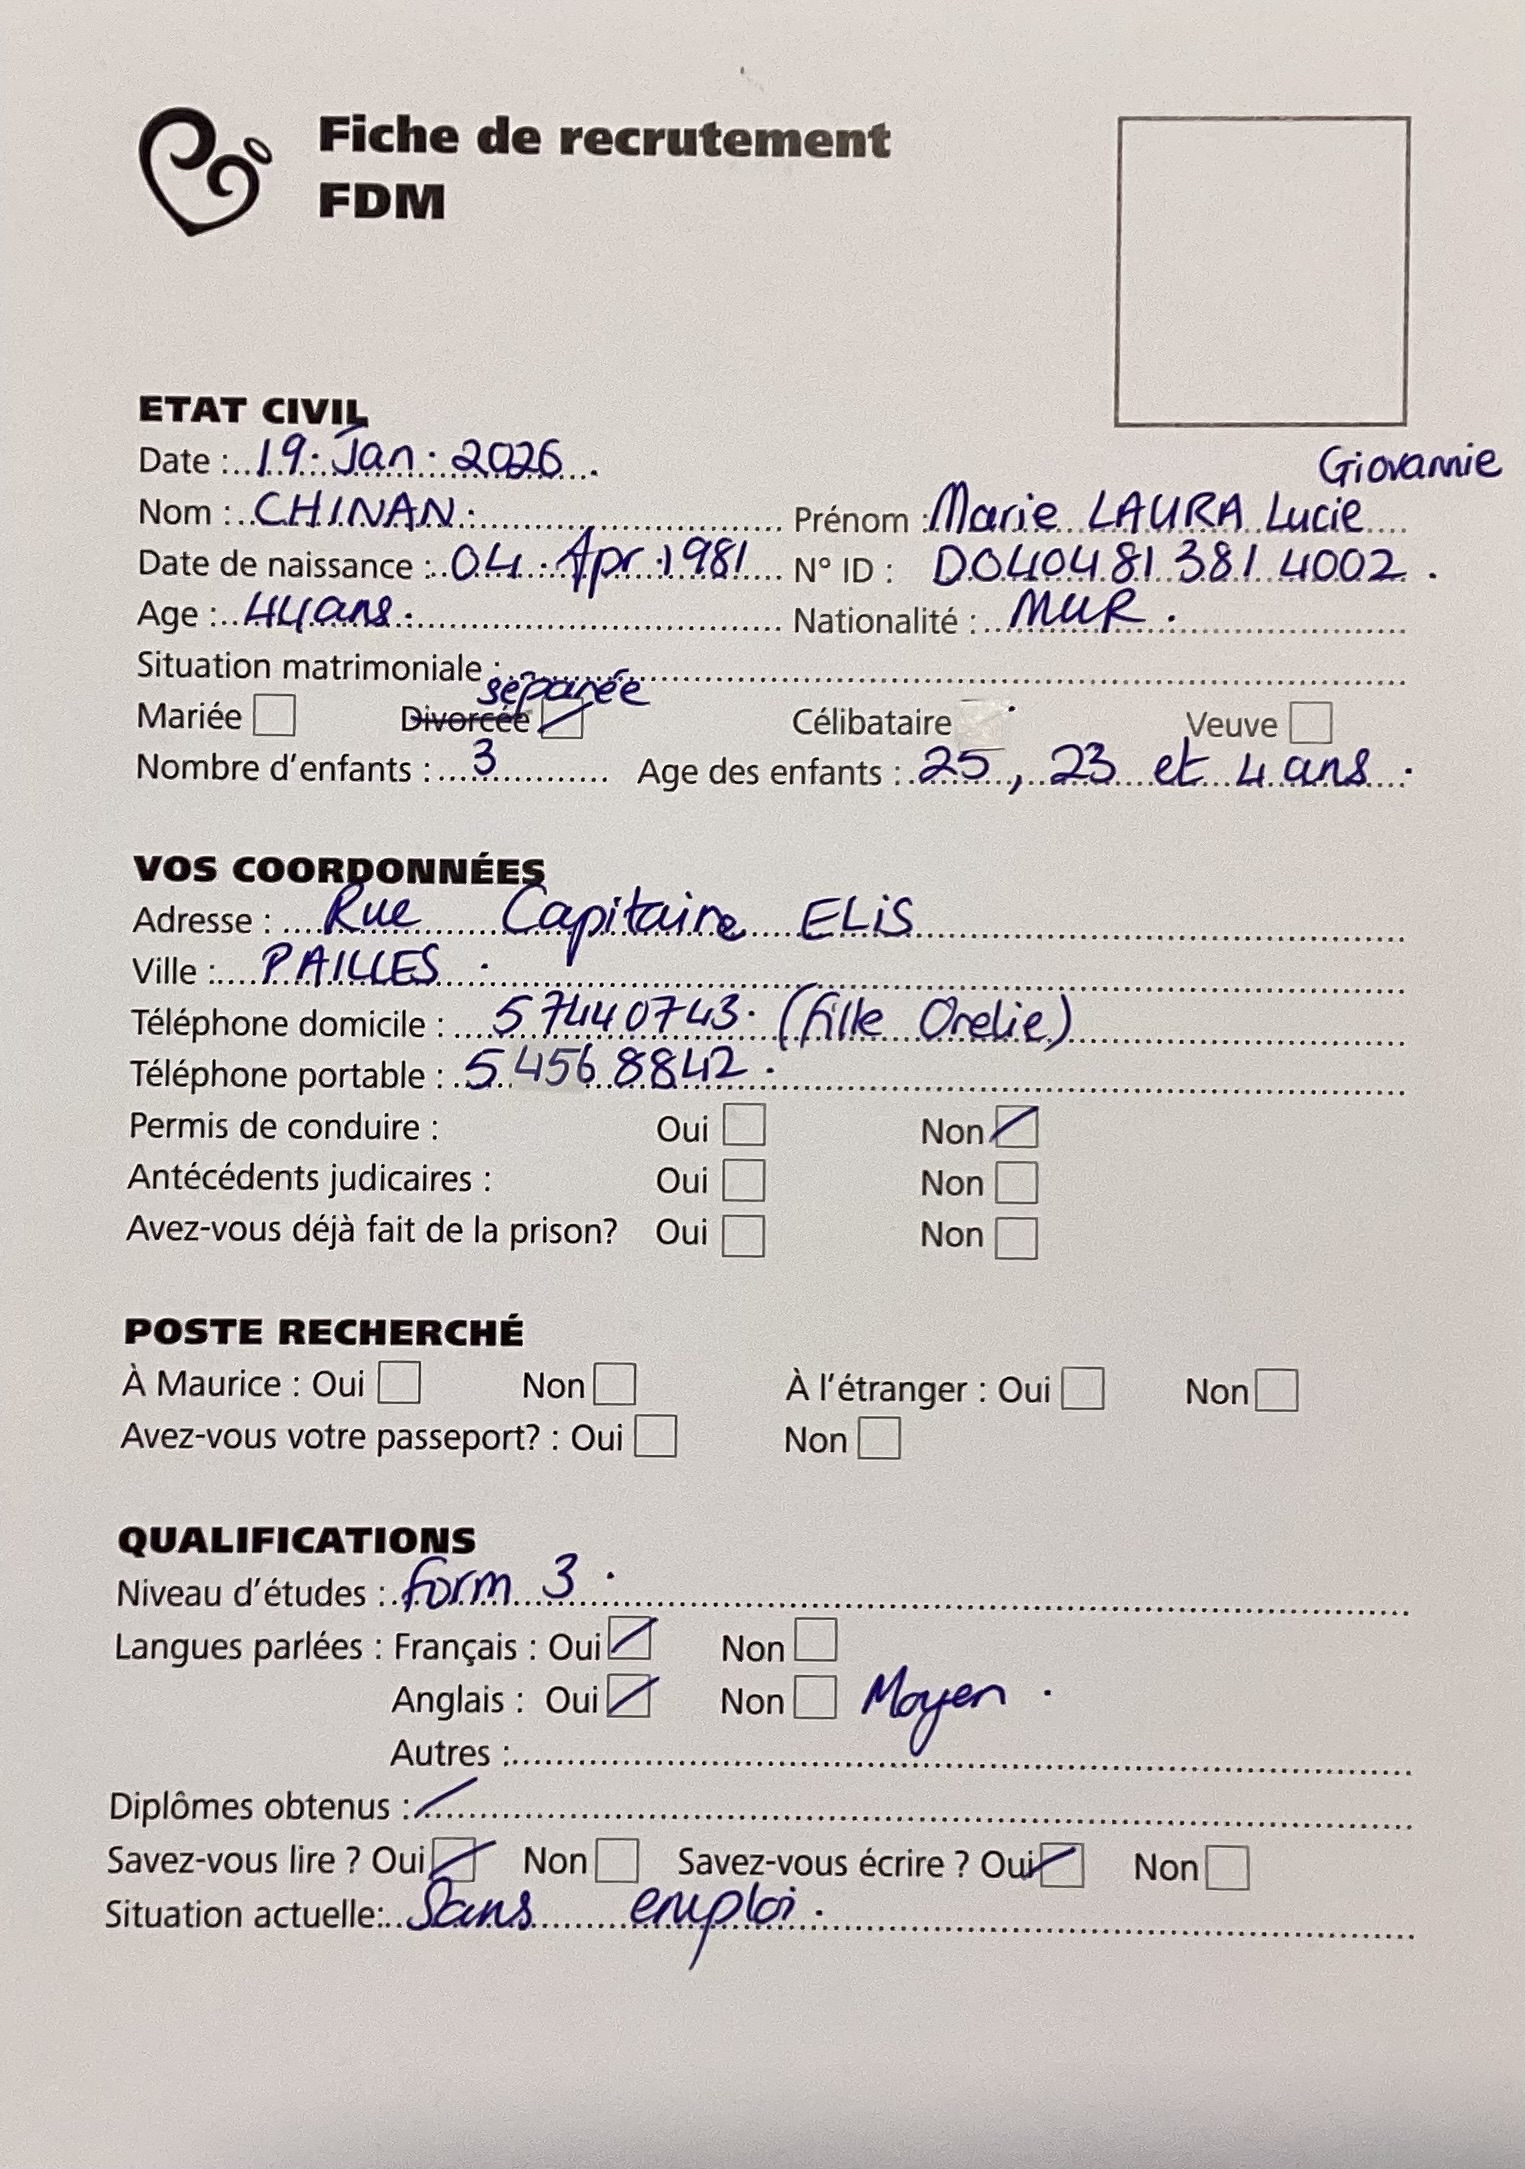 Fiche de recrutement
FDM
ETAT CIVIL
Date : 19. Jan. 2026
Giovannie
Nom : CHINAN. Prénom : Marie LAURA Lucie
Date de naissance : 04. Apr. 1981 N° ID : D040481 381 4002.
Age : 44 ans. Nationalité : MUR.
Situation matrimoniale :
séparée
Mariée Divorcée Célibataire Veuve
Nombre d'enfants : 3 Age des enfants : 25, 23 et 4 ans.
VOS COORDONNÉES
Adresse : Rue Capitaine ELiS
Ville : PAILLES.
Téléphone domicile : 57440743. (fille Orelie)
Téléphone portable : 5 456 8842.
Permis de conduire : Oui Non
Antécédents judicaires : Oui Non
Avez-vous déjà fait de la prison? Oui Non
POSTE RECHERCHÉ
À Maurice : Oui Non À l'étranger : Oui Non
Avez-vous votre passeport? : Oui Non
QUALIFICATIONS
Niveau d'études : form 3.
Langues parlées : Français : Oui Non
Anglais : Oui Non Moyen.
Autres :
Diplômes obtenus : /
Savez-vous lire ? Oui Non Savez-vous écrire ? Oui Non
Situation actuelle: Sans emploi.